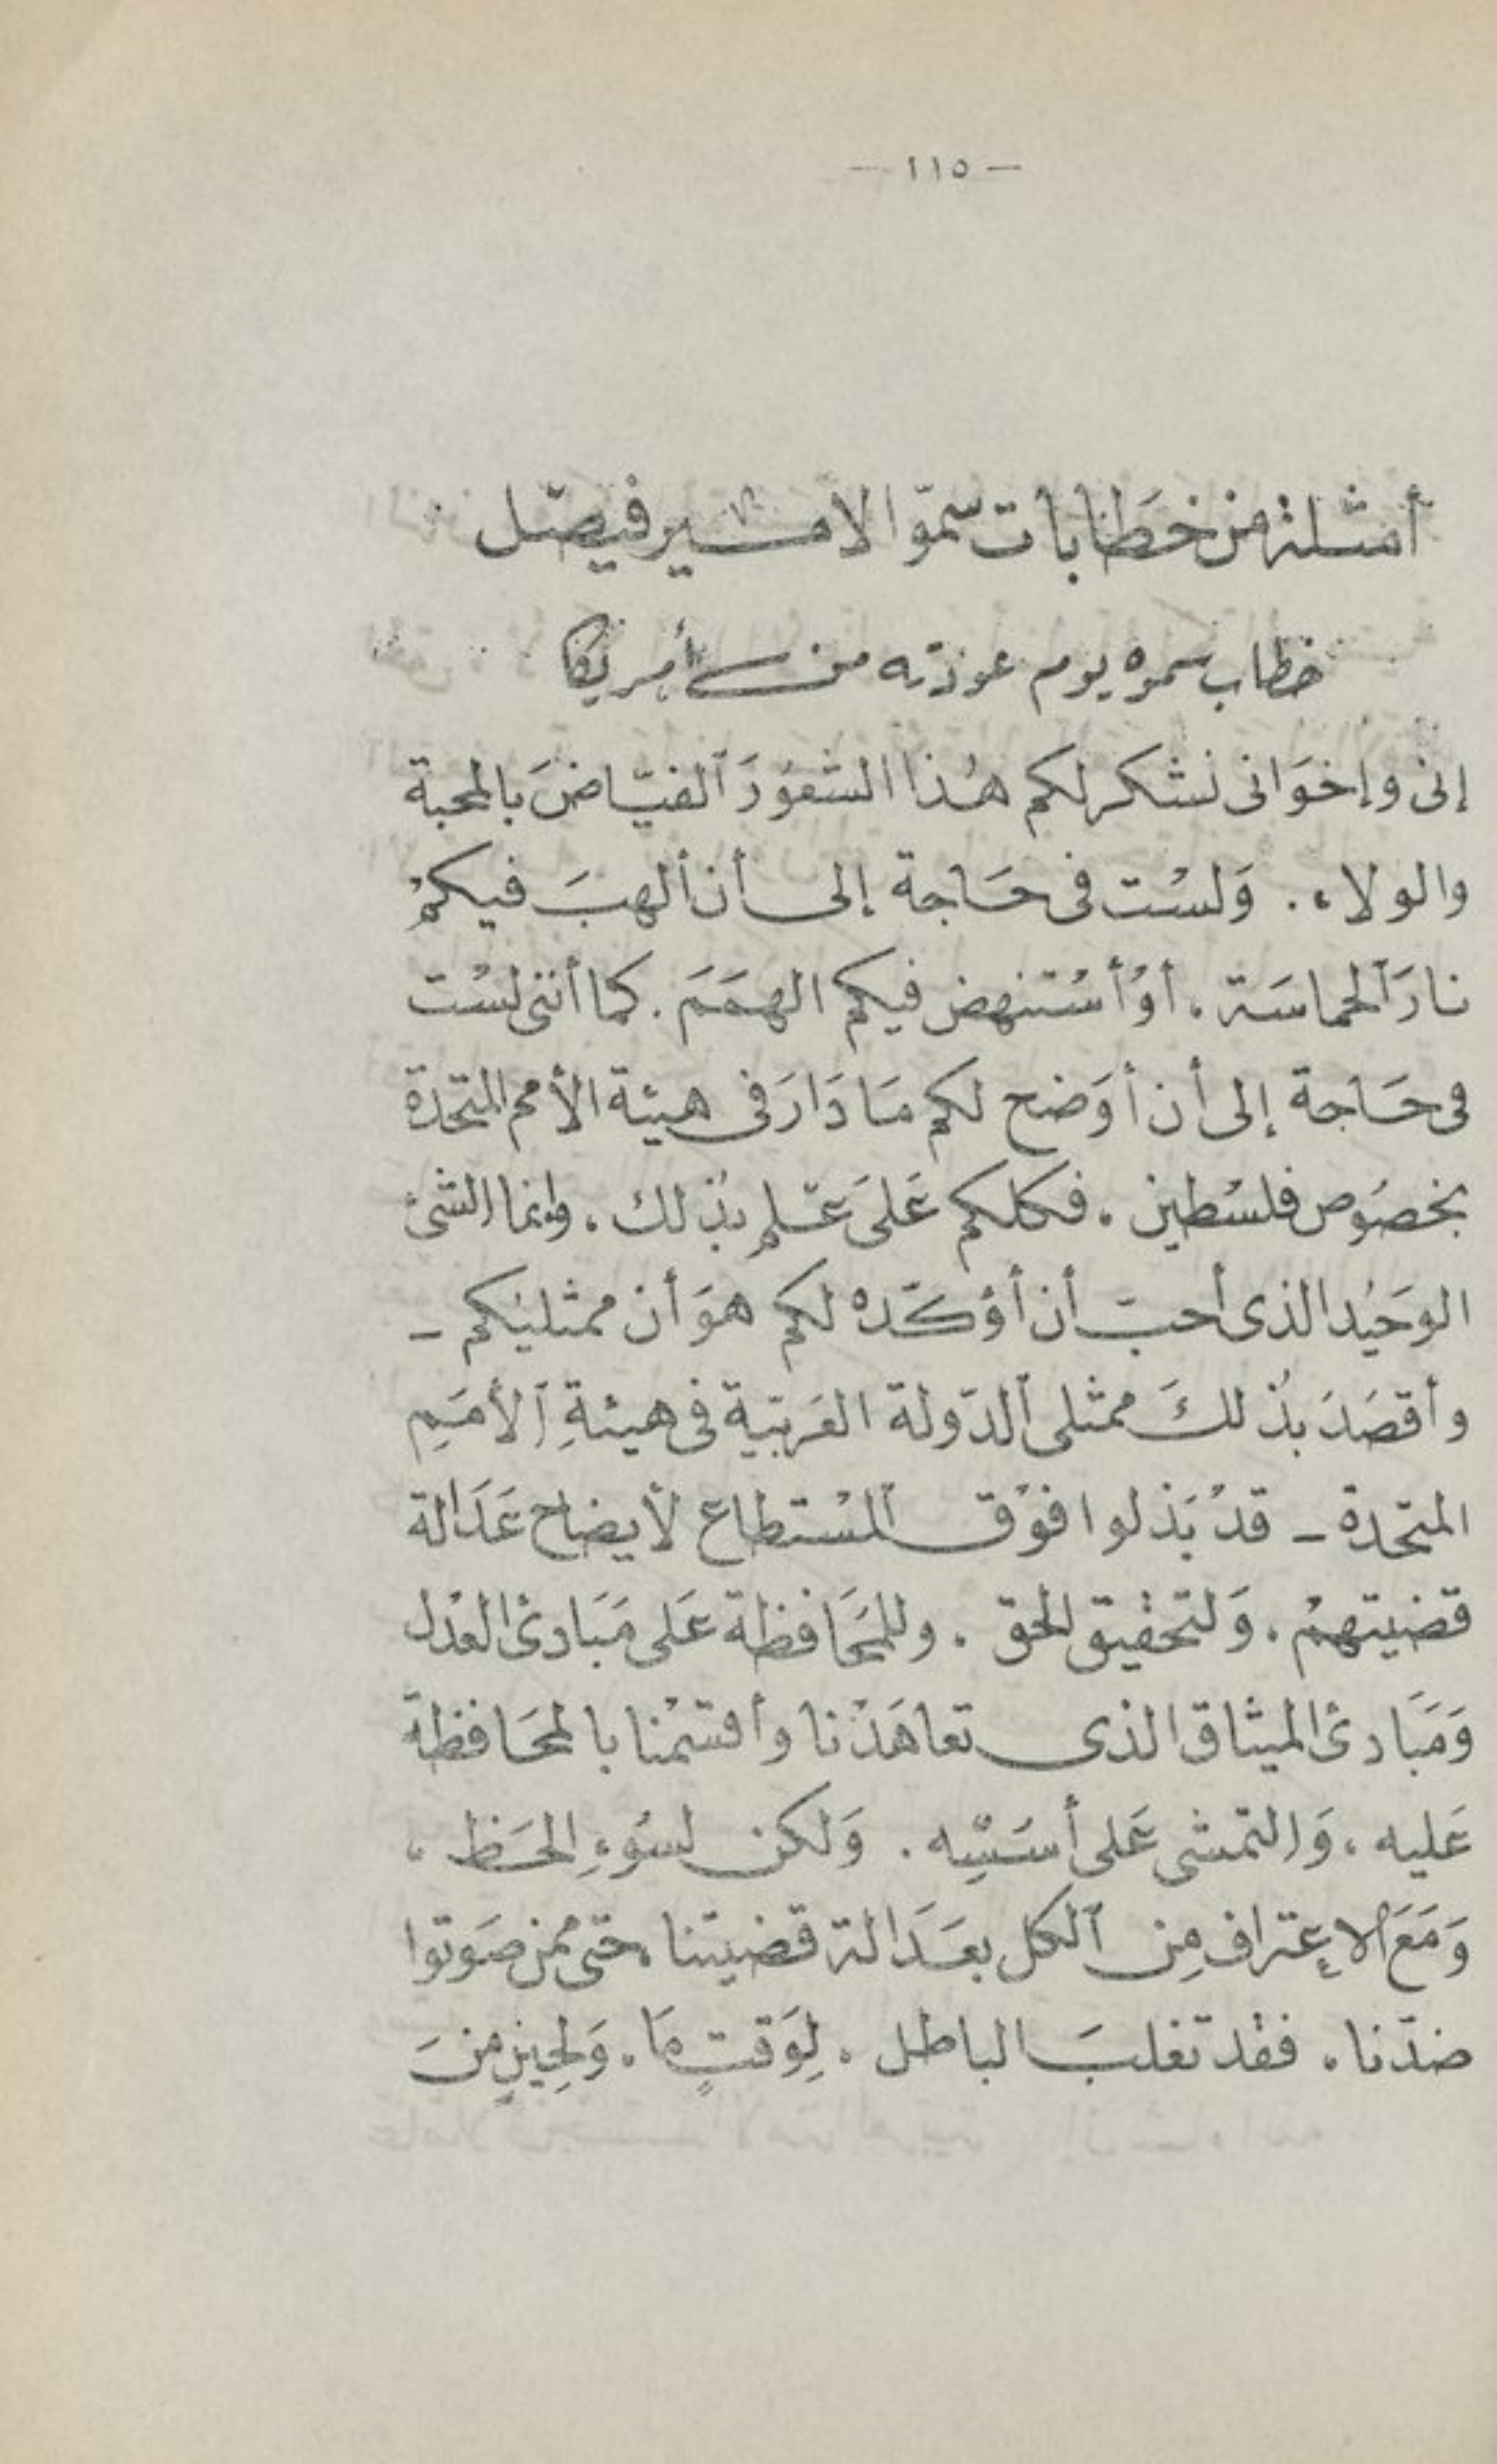 — ١١٥ —
أمثلة من خطابات سموّ الامير فيصل
خطاب سموه يوم عودته من أمريكا
إنى وإخوَانى نشكر لكم هٰذا الشعوُرَ ٱلفيّاضَ بالمحبة
والولاء . وَلسْت فى حَاجة إلى أن ألهبَ فيكمْ
نارَ ٱلحماسَة . أوْ أسْتنهض فيكم الهمَمَ . كما أننى لسْت
فى حَاجة إلى أن أوَضح لكم مَا دَارَ فى هيئة الأمم المتحدة
بخصُوص فلسْطين . فكلكم عَلىَ عْلم بذٰلك . وإنما الشئ
الوَحيْد الذى أحبّ أن أؤكّده لكم هوَ أن ممثليْكم –
وأقصَدَ بذٰلكَ ممثلى ٱلدّولة العَربيّة فى هيئةِ ٱلأمَمِ
المتحدة – قدْ بَذلوا فوْق ٱلمسْتطاع لأيضاح عَدَالة
قضيتهمْ . وَلتحقيق الحق . وللمحَافظة عَلى مَبَادئ العدْل
وَمَبَادئ الميثاق الذى تعاهَدْنا وأقسَمْنا بالمحَافظة
عَليه ، وَالتمشى عَلى أسَسِه . وَلكن لسُوءِ الحَظ ،
وَمَعَ الإعتراف مِن ٱلكل بعَدَالة قضيتنا ، حتى ممن صَوتوا
ضدّنا . فقْد تغلبَ الباطل . لِوَقتٍ مَا . وَلحِينٍ منَ